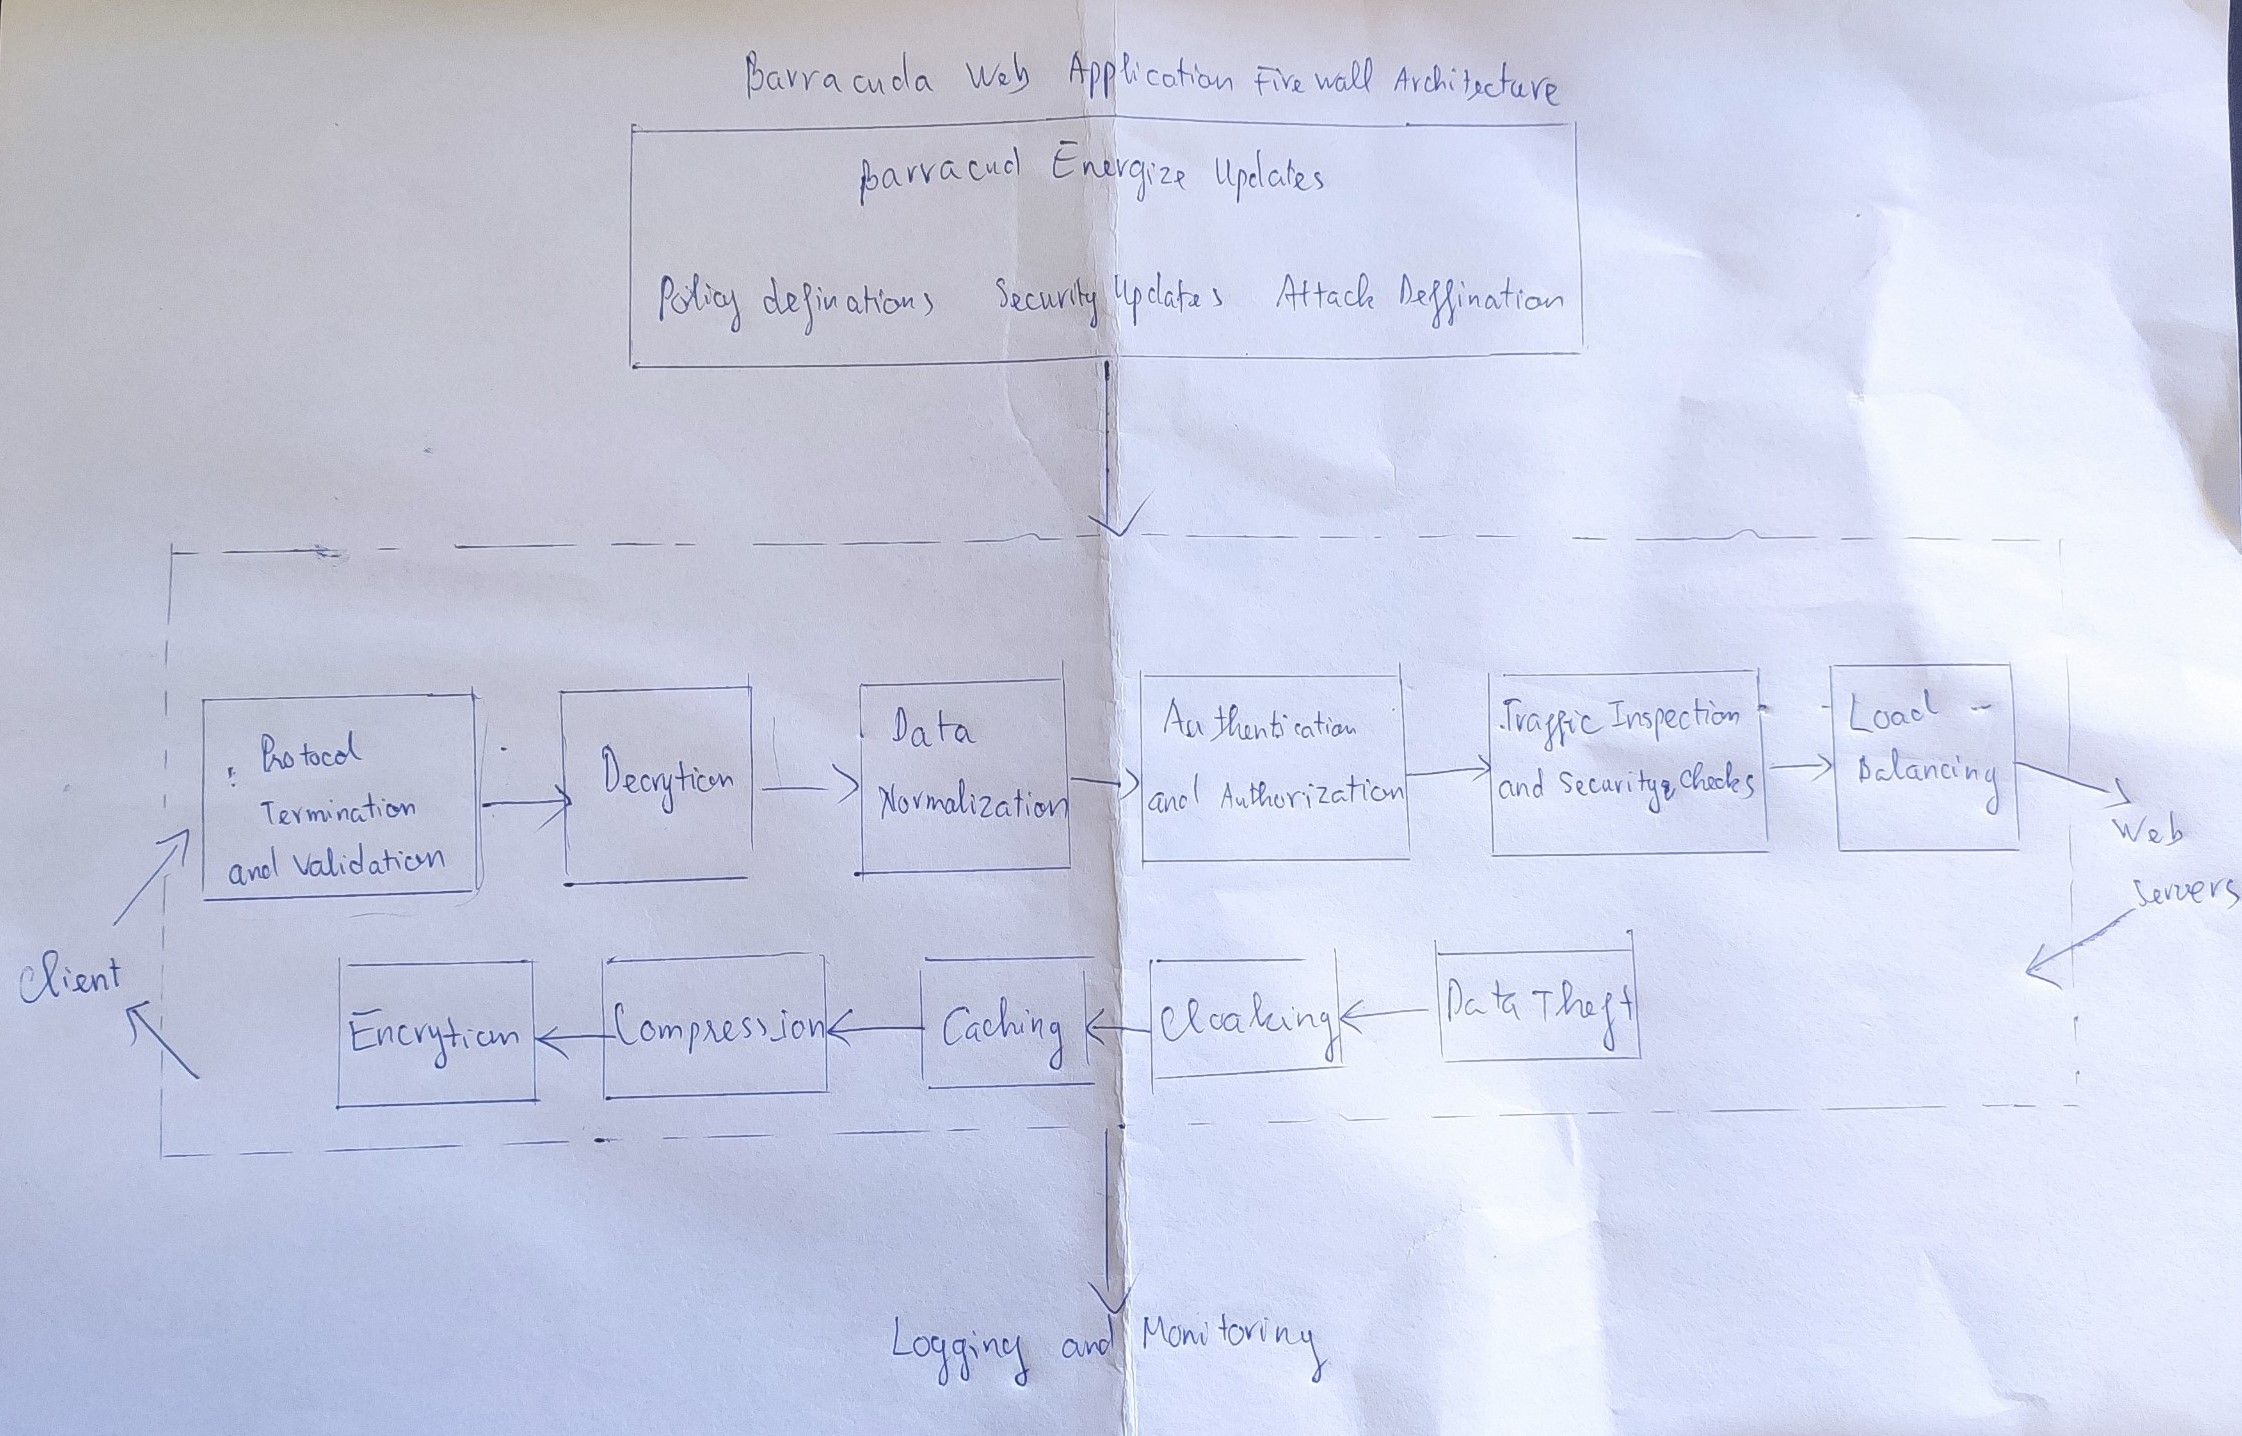 Barracuda Web Application Firewall Architecture
Barracud Energize Updates
Policy definations Security Updates Attack Deffination
Protocol
Termination
and Validation
Decrytion
Data
Normalization
Authentication
and Authorization
Traffic Inspection
and Security Checks
Load -
Balancing
Web
Servers
Client
Encrytion
Compression
Caching
Cloaking
Data Theft
Logging and Monitoring